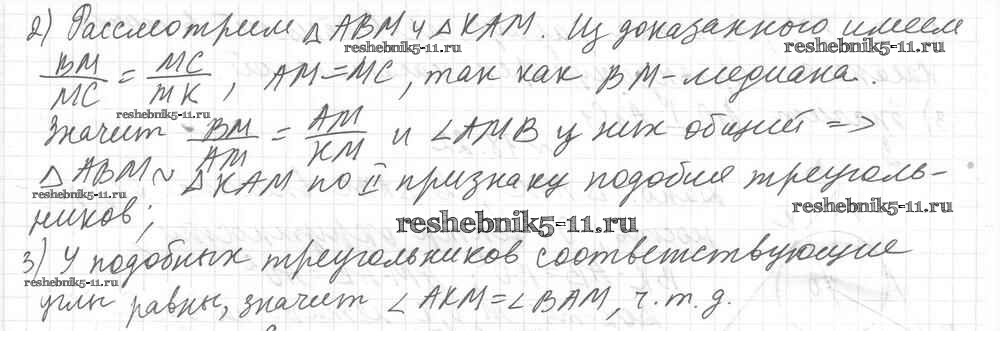 2) Рассмотрим △ABM и △KAM. Из доказанного имеем
reshebnik5-11.ru reshebnik5-11.ru
BM/MC = MC/MK, AM=MC, так как BM-медиана.
reshebnik5-11.ru
Значит BM/AM = AM/KM и ∠AMB у них общий =>
△ABM ~ △KAM по II признаку подобия треуголь-
reshebnik5-11.ru reshebnik5-11.ru
ников;
reshebnik5-11.ru
3) У подобных треугольников соответствующие
reshebnik5-11.ru
углы равны, значит ∠AKM=∠BAM, ч.т.д.